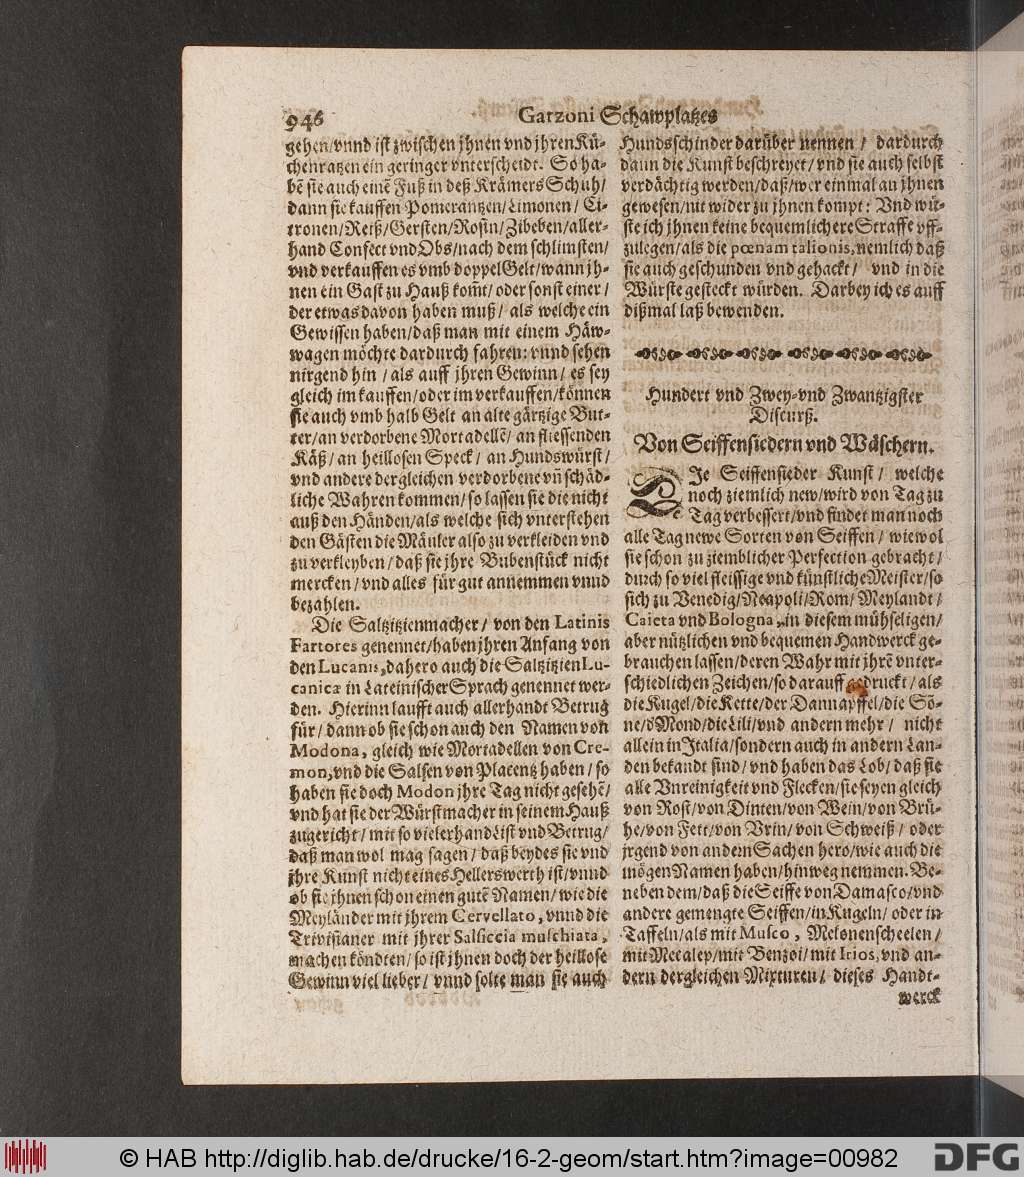 946
Garzoni Schawplatzes
gehen/vnnd ist zwischen jhnen vnd jhren Kü-
chenratzen ein geringer vnterscheidt. So ha-
bẽ sie auch einẽ Fuß in deß Krämers Schuh/
dann sie kauffen Pomerantzen/Limonen/ Ci-
tronen/Reiß/Gersten/Rosin/Zibeben/aller-
hand Confect vnd Obs/nach dem schlimsten/
vnd verkauffen es vmb doppel Gelt/wann jh-
nen ein Gast zu Hauß kom̃t/ oder sonst einer/
der etwas davon haben muß/ als welche ein
Gewissen haben/daß man mit einem Häw-
wagen möchte dardurch fahren: vnnd sehen
nirgend hin / als auff jhren Gewinn/ es sey
gleich im kauffen/oder im verkauffen/können
sie auch vmb halb Gelt an alte gärtzige But-
ter/an verdorbene Mortadellẽ/ an fliessenden
Käß/ an heillosen Speck/ an Hundswürst/
vnd andere dergleichen verdorbene vñ schäd-
liche Wahren kommen/ so lassen sie die nicht
auß den Händen/als welche sich vnterstehen
den Gästen die Mäuler also zu verkleiden vnd
zu verkleyben/ daß sie jhre Bubenstück nicht
mercken/ vnd alles für gut annemmen vnnd
bezahlen.
Die Saltzitzienmacher/ von den Latinis
Fartores genennet/haben jhren Anfang von
den Lucanis, dahero auch die Saltzitzien Lu-
canicæ in Lateinischer Sprach genennet wer-
den. Hierinn laufft auch allerhandt Betrug
für/ dann ob sie schon auch den Namen von
Modona, gleich wie Mortadellen von Cre-
mon, vnd die Salsen von Placentz haben/ so
haben sie doch Modon jhre Tag nicht gesehẽ/
vnd hat sie der Würstmacher in seinem Hauß
zugericht/ mit so vielerhand List vnd Betrug/
daß man wol mag sagen/ daß beydes sie vnd
jhre Kunst nicht eines Hellers werth ist/vnnd
ob sie jhnen schon einen gutẽ Namen/ wie die
Meyländer mit jhrem Cervellato, vnnd die
Trivisianer mit jhrer Salsiccia muschiata,
machen köndten/ so ist jhnen doch der heillose
Gewinn viel lieber/ vnnd solte man sie auch
Hundsschinder darüber nennen/ dardurch
dann die Kunst beschreyet/ vnd sie auch selbst
verdächtig werden/daß/wer einmal an jhnen
gewesen/nit wider zu jhnen kompt: Vnd wü-
ste ich jhnen keine bequemlichere Straffe vff-
zulegen/als die pœnam talionis, nemlich daß
sie auch geschunden vnd gehackt/ vnd in die
Würste gesteckt würden. Darbey ich es auff
dißmal laß bewenden.
Hundert vnd Zwey-vnd Zwantzigster
Discurß.
Von Seiffensiedern vnd Wäschern.
DIe Seiffensieder Kunst/ welche
noch ziemlich new/wird von Tag zu
Tag verbessert/vnd findet man noch
alle Tag newe Sorten von Seiffen/ wiewol
sie schon zu ziemblicher Perfection gebracht/
durch so viel fleissige vnd künstliche Meister/so
sich zu Venedig/Neapoli/Rom/ Meylandt/
Caieta vnd Bologna, in diesem mühseligen/
aber nützlichen vnd bequemen Handwerck ge-
brauchen lassen/deren Wahr mit jhrẽ vnter-
schiedlichen Zeichen/so darauff gedruckt/als
die Kugel/die Kette/der Dannapffel/die Sö-
ne/ď Mond/die Lili/vnd andern mehr/ nicht
allein in Italia/sondern auch in andern Lan-
den bekandt sind/ vnd haben das Lob/ daß sie
alle Vnreinigkeit vnd Flecken/sie seyen gleich
von Rost/von Dinten/von Wein/von Brü-
he/von Fett/von Vrin/von Schweiß/ oder
jrgend von andern Sachen hero/wie auch die
mögen Namen haben/hinweg nemmen. Be-
neben dem/daß die Seiffe von Damasco/vnd
andere gemengte Seiffen/in Kugeln/ oder in
Taffeln/als mit Musco, Melonenscheelen/
mit Mecalep/mit Benzoi/mit Irios, vnd an-
dern dergleichen Mixturen/ dieses Handt-
werck
© HAB http://diglib.hab.de/drucke/16-2-geom/start.htm?image=00982
DFG